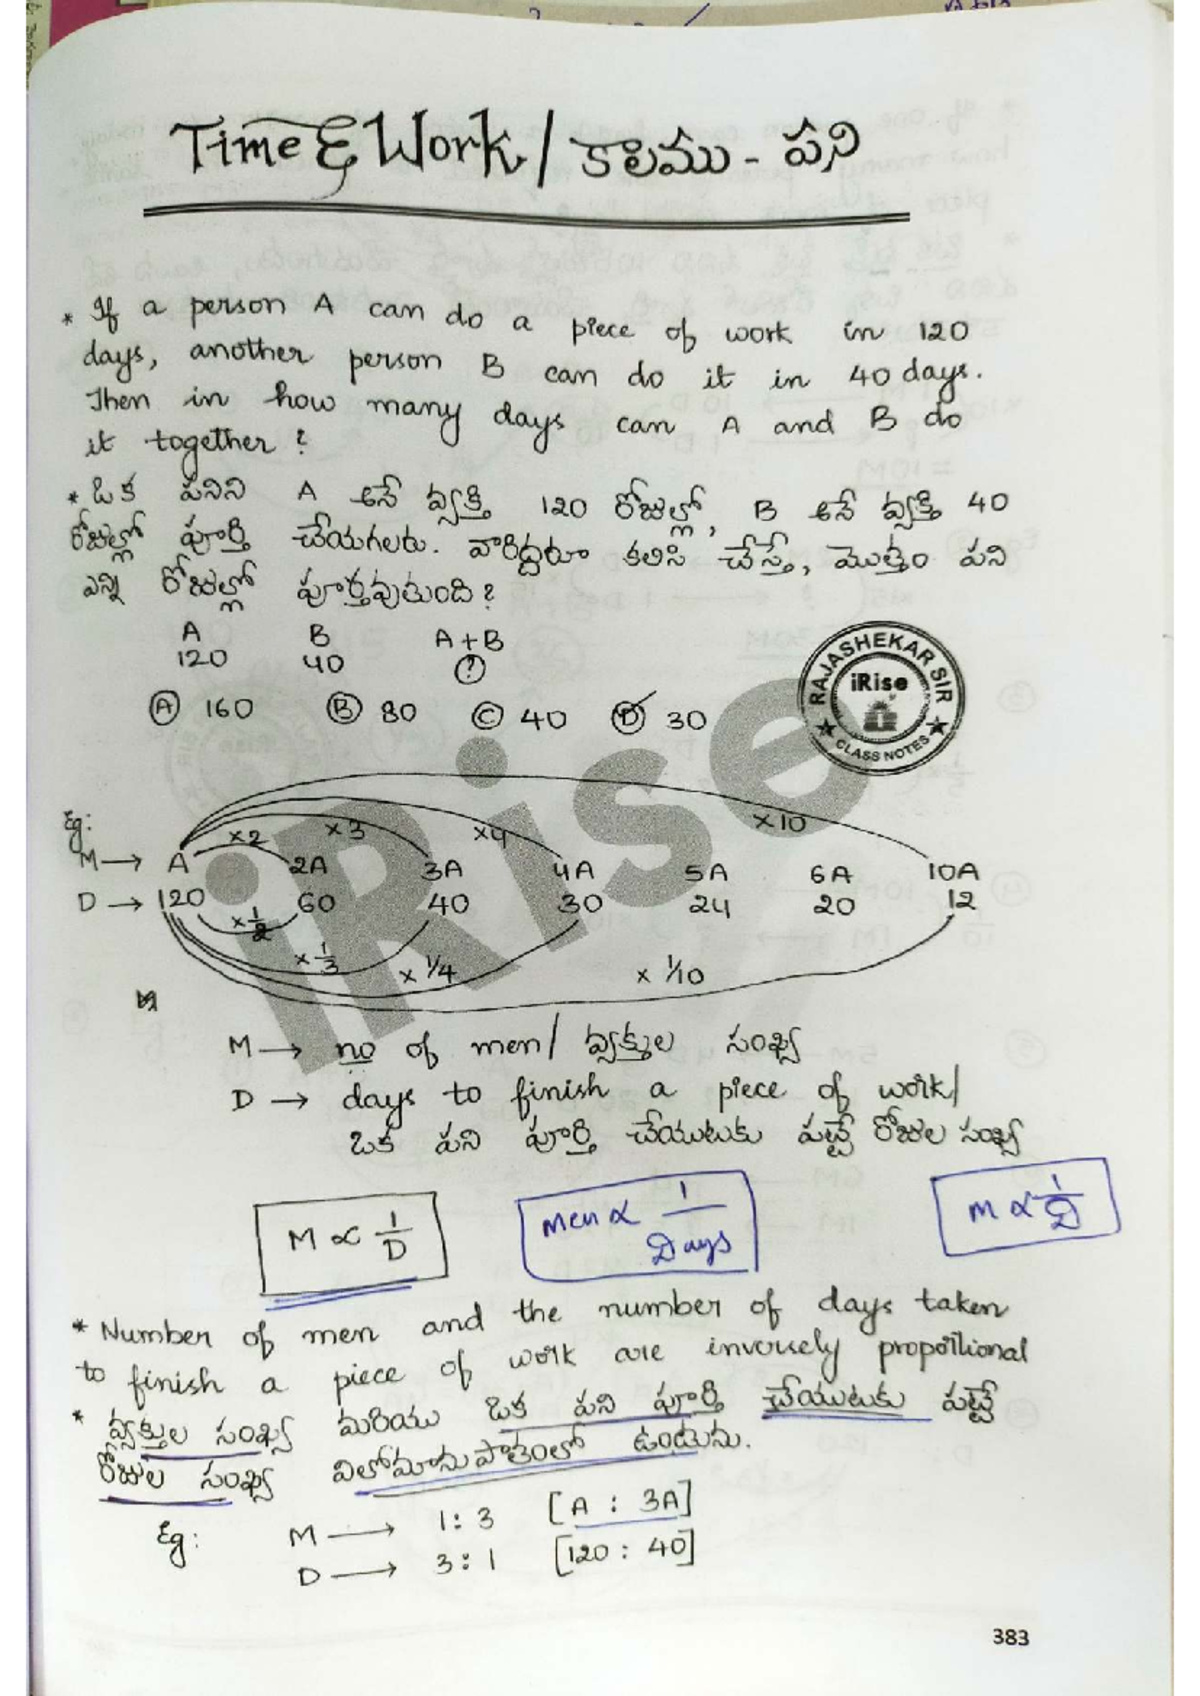 Time & Work / కాలము - పని
* If a person A can do a piece of work in 120
days, another person B can do it in 40 days.
Then in how many days can A and B do
it together?
* ఒక పనిని A అనే వ్యక్తి 120 రోజుల్లో, B అనే వ్యక్తి 40
రోజుల్లో పూర్తి చేయగలరు. వారిద్దరూ కలిసి చేస్తే, మొత్తం పని
ఎన్ని రోజుల్లో పూర్తవుతుంది?
A B A+B
120 40 ?
RAJASHEKAR SIR
iRise
CLASS NOTES
Ⓐ 160 Ⓑ 80 Ⓒ 40 Ⓓ 30
iRise
Eg:
×2 ×3 ×4 ×10
M → A 2A 3A 4A 5A 6A 10A
D → 120 60 40 30 24 20 12
×1/2 ×1/3 × 1/4 × 1/10
M → no of men / వ్యక్తుల సంఖ్య
D → days to finish a piece of work/
ఒక పని పూర్తి చేయుటకు పట్టే రోజుల సంఖ్య
M ∝ 1/D men ∝ 1/Days m ∝ 1/D
* Number of men and the number of days taken
to finish a piece of work are inversely proportional
* వ్యక్తుల సంఖ్య మరియు ఒక పని పూర్తి చేయుటకు పట్టే
రోజుల సంఖ్య విలోమానుపాతంలో ఉండును.
Eg: M → 1:3 [A : 3A]
D → 3:1 [120 : 40]
383